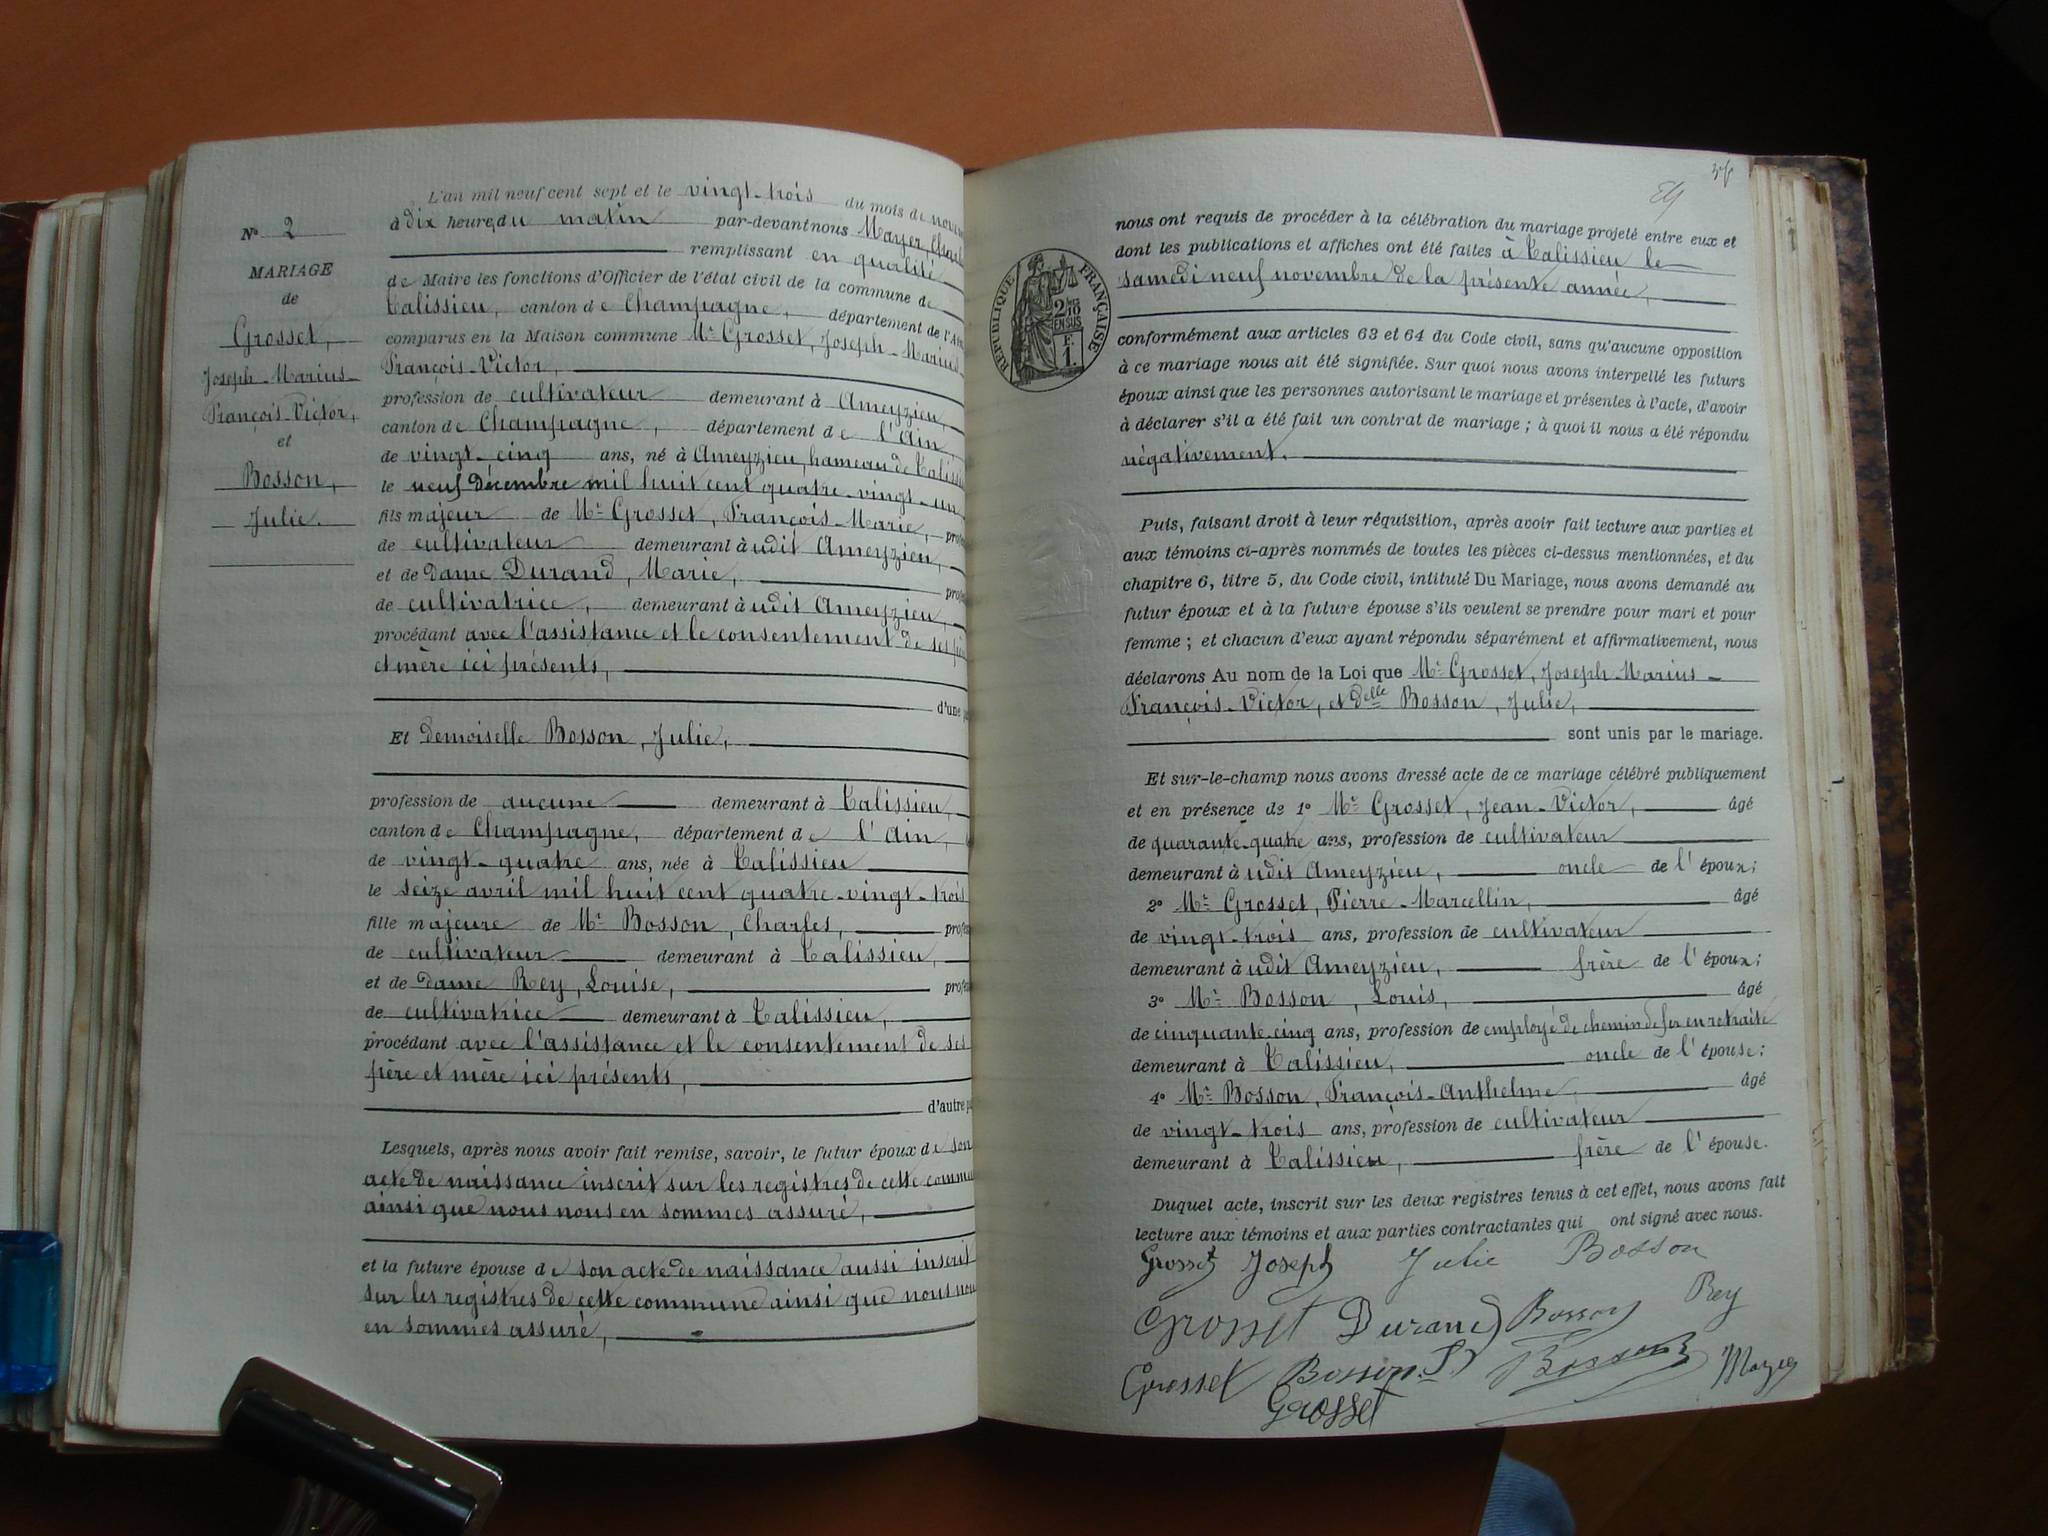 L'an mil neuf cent sept et le vingt-trois du mois de
à dix heures du matin par-devant nous Mayer
remplissant en qualité
de Maire les fonctions d'Officier de l'état civil de la commune de
Talissieu, canton de Champagne, département de l'Ain
comparus en la Maison commune Mr Grosset, Joseph-Marius
François-Victor,
profession de cultivateur demeurant à Ameyzieu,
canton de Champagne, département de l'Ain,
de vingt-cinq ans, né à Ameyzieu, hameau de
le neuf Décembre mil huit cent quatre-vingt-un
fils majeur de Mr Grosset, François-Marie,
de cultivateur demeurant à udit Ameyzieu,
et de Dame Durand, Marie,
de cultivatrice, demeurant à udit Ameyzieu,
procédant avec l'assistance et le consentement de ses
et mère ici présents,
d'une
Et Demoiselle Bosson, Julie,
profession de aucune demeurant à Talissieu,
canton de Champagne, département de l'Ain,
de vingt-quatre ans, née à Talissieu
le seize avril mil huit cent quatre-vingt-trois
fille majeure de Mr Bosson, Charles,
de cultivateur demeurant à Talissieu,
et de Dame Rey, Louise,
de cultivatrice demeurant à Talissieu,
procédant avec l'assistance et le consentement de ses
père et mère ici présents,
d'autre
Lesquels, après nous avoir fait remise, savoir, le futur époux de son
acte de naissance inscrit sur les registres de cette
ainsi que nous nous en sommes assuré,
et la future épouse de son acte de naissance aussi inscrit
sur les registres de cette commune ainsi que nous
en sommes assuré,
No 2
MARIAGE
de
Grosset,
Joseph-Marius-
François-Victor,
et
Bosson,
Julie.
nous ont requis de procéder à la célébration du mariage projeté entre eux et
dont les publications et affiches ont été faites à Talissieu le
samedi neuf novembre de la présente année,
RÉPUBLIQUE FRANÇAISE
2/10
EN SUS
F.
1.
conformément aux articles 63 et 64 du Code civil, sans qu'aucune opposition
à ce mariage nous ait été signifiée. Sur quoi nous avons interpellé les futurs
époux ainsi que les personnes autorisant le mariage et présentes à l'acte, d'avoir
à déclarer s'il a été fait un contrat de mariage ; à quoi il nous a été répondu
négativement.
Puis, faisant droit à leur réquisition, après avoir fait lecture aux parties et
aux témoins ci-après nommés de toutes les pièces ci-dessus mentionnées, et du
chapitre 6, titre 5, du Code civil, intitulé Du Mariage, nous avons demandé au
futur époux et à la future épouse s'ils veulent se prendre pour mari et pour
femme ; et chacun d'eux ayant répondu séparément et affirmativement, nous
déclarons Au nom de la Loi que Mr Grosset, Joseph-Marius-
François-Victor, et Delle Bosson, Julie,
sont unis par le mariage.
Et sur-le-champ nous avons dressé acte de ce mariage célébré publiquement
et en présence de 1o Mr Grosset, Jean-Victor, âgé
de quarante-quatre ans, profession de cultivateur
demeurant à udit Ameyzieu, oncle de l'époux;
2o Mr Grosset, Pierre-Marcellin, âgé
de vingt-trois ans, profession de cultivateur
demeurant à udit Ameyzieu, frère de l'époux;
3o Mr Bosson, Louis, âgé
de cinquante-cinq ans, profession de employé de chemin de fer en retraite
demeurant à Talissieu, oncle de l'épouse;
4o Mr Bosson, François-Anthelme, âgé
de vingt-trois ans, profession de cultivateur
demeurant à Talissieu, frère de l'épouse.
Duquel acte, inscrit sur les deux registres tenus à cet effet, nous avons fait
lecture aux témoins et aux parties contractantes qui ont signé avec nous.
Grosset Joseph Julie Bosson
Grosset Durand Bosson Rey
Grosset Bosson Bosson Mayer
Grosset